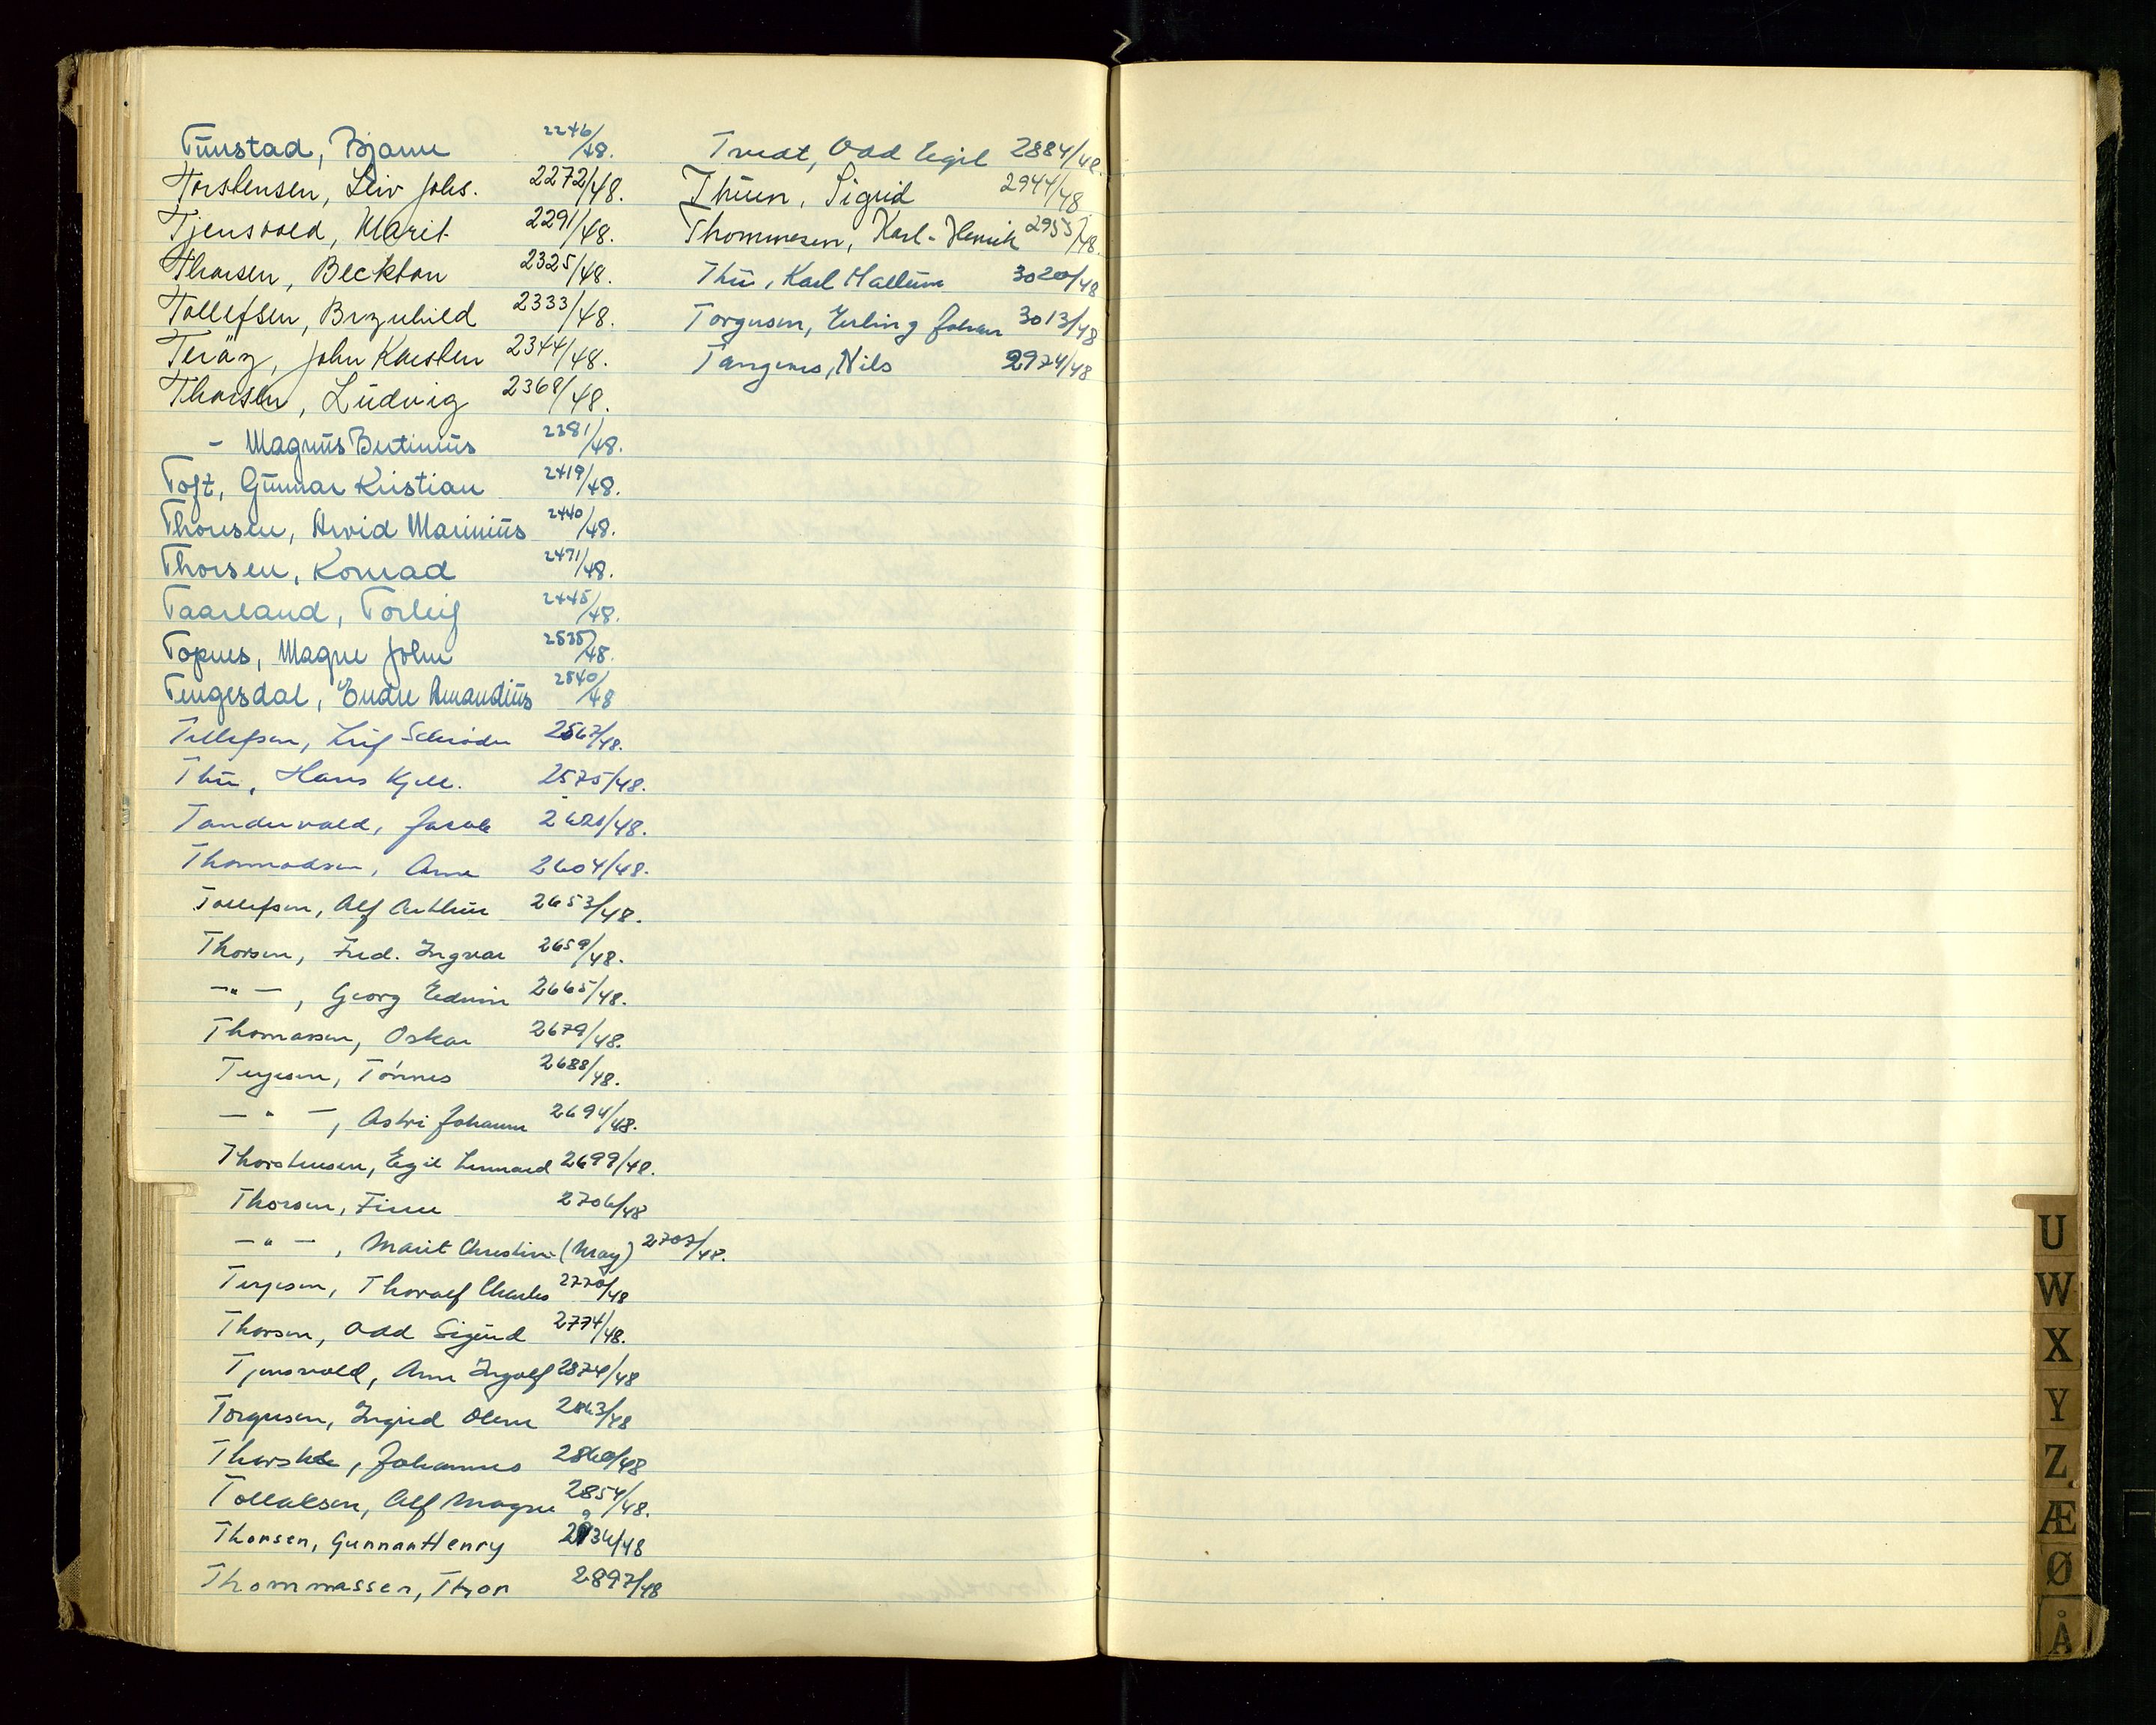 Tunstad, Bjarne 2246/48.
Torstensen, Leiv Johs. 2272/48.
Tjensvold, Marit 2291/48.
Thorsen, Beckton 2325/48.
Tollefsen, Brynhild 2333/48.
Teräy, John Karsten 2344/48.
Thorsen, Ludvig 2368/48.
- Magnus Bertinius 2381/48.
Toft, Gunnar Kristian 2419/48.
Thorsen, Arvid Marinius 2440/48.
Thorsen, Konrad 2471/48.
Taarland, Torleif 2445/48.
Topnes, Magne John 2535/48.
Tengesdal, Endre Amandius 2540/48
Tollefsen, Leif Schrøder 2567/48.
Thu, Hans Kjell. 2575/48.
Tandervold, Jacob 2621/48.
Thormodsen, Arne 2604/48.
Tollefsen, Alf Arthur 2653/48.
Thorsen, Fred. Ingvar 2659/48.
-"-, Georg Edwin 2665/48.
Thomassen, Oskar 2679/48.
Terjesen, Tönnes 2688/48.
-"-, Astri Johanne 2694/48.
Thorstensen, Egil Lennard 2699/48.
Thorsen, Finn 2706/48
-"-, Marit Christine (May) 2707/48.
Terjesen, Thoralf Charles 2770/48
Thorsen, Odd Sigurd 2774/48.
Tjensvold, Arne Ingolf 2874/48
Torgersen, Ingrid Olene 2863/48
Johannes 2860/48
Tollaksen, Alf Magne 2854/48.
Thorsen, Gunnar Henry 2934/48
Thommassen, Thor 2897/48
Tvedt, Odd Egil 2884/48.
Thuen, Sigrid 2944/48
Thommesen, Karl-Henrik 2955/48.
Thu, Karl Mallum 3020/48
Torgersen, Erling Johan 3013/48
Tangenes, Nils 2974/48
U
W
X
Y
Z
Æ
Ø
Å